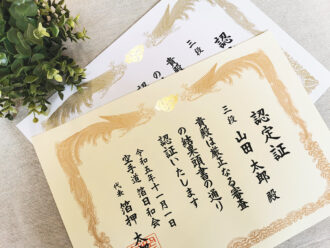 認定証
三段 山田 太郎 殿
貴殿は厳正なる審査
の結果頭書の通り
認証いたします
令和五年十一月一日
空手道 箔日和会
代表 箔押し太
認定
三段
貴殿
の